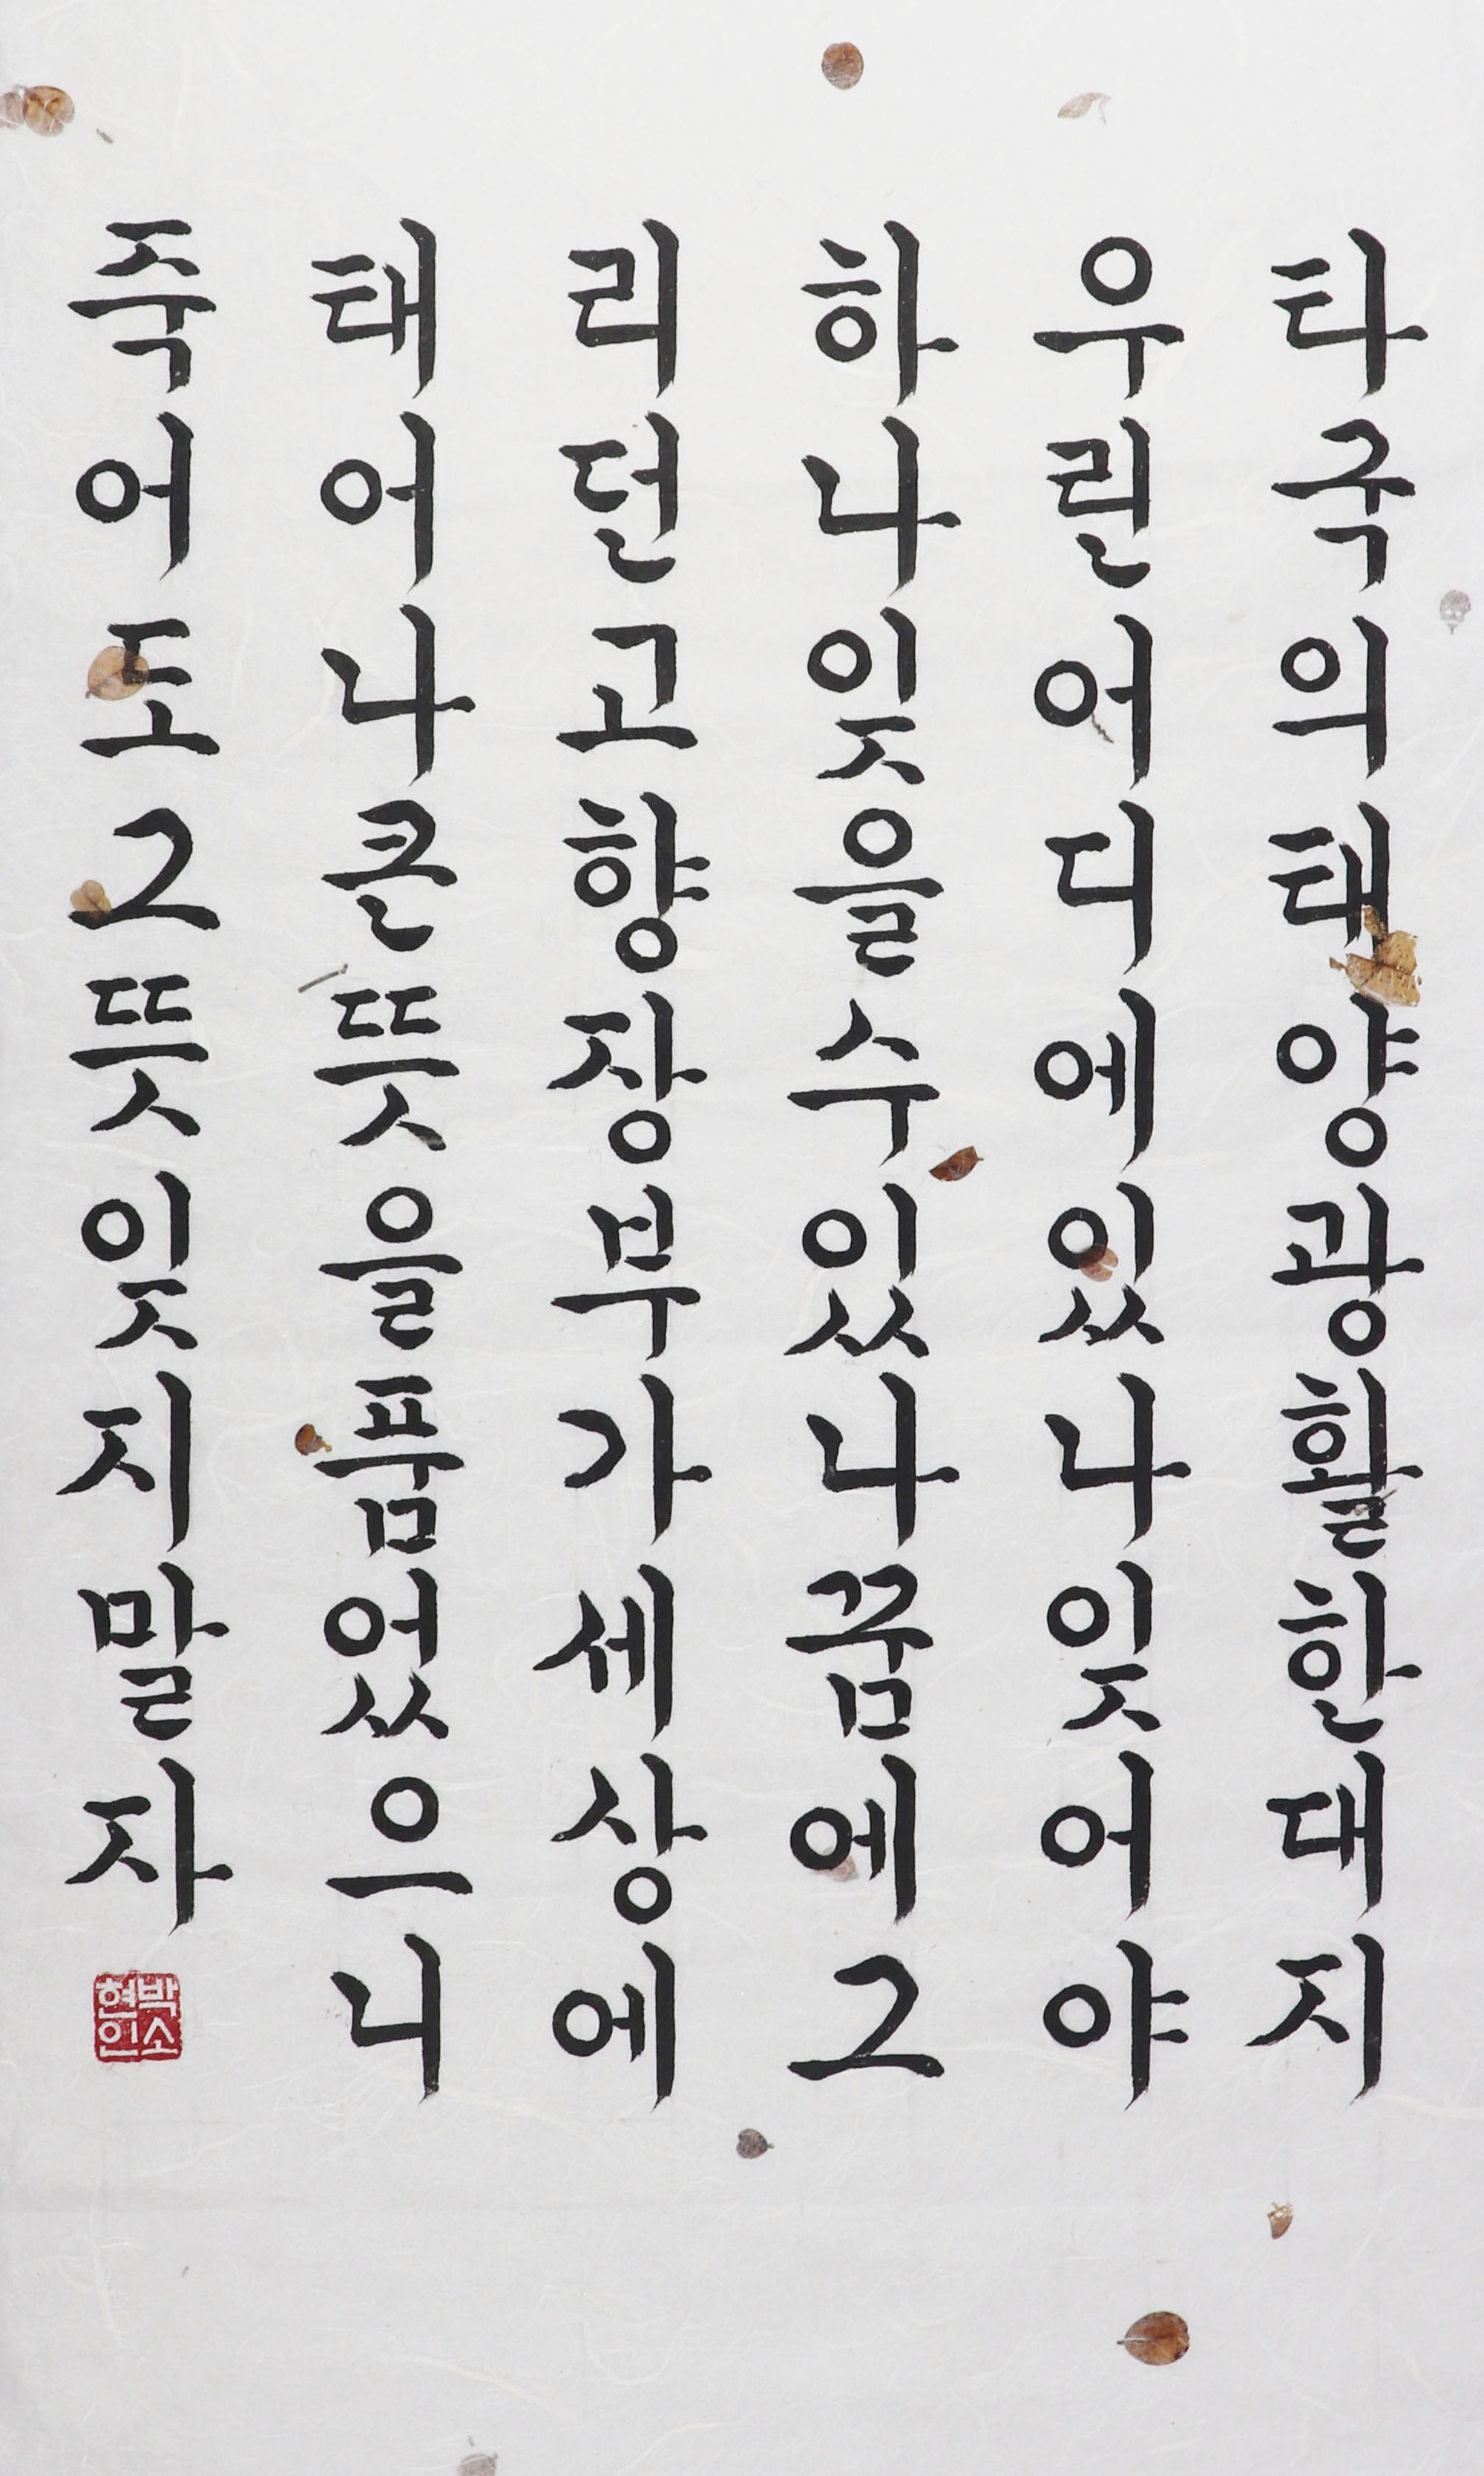 타국의태양광활한대지
우린어디에있나잊어야
하나잊을수있나꿈에그
리던고향장부가세상에
태어나큰뜻을품었으니
죽어도그뜻잊지말자
박소현인